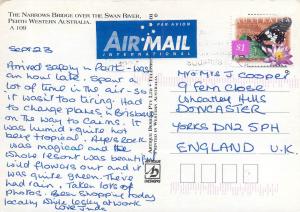 THE NARROWS BRIDGE OVER THE SWAN RIVER,
PERTH WESTERN AUSTRALIA.
A 109
PAR AVION
AIR MAIL
INTERNATIONAL
AUSTRALIA
$1
Sept 23
Arrived safely in Perth - was
an hour late. Spent a
lot of time in the air - so
it wasn't too tiring. Had
to change planes in Brisbane
on the way to Cairns. It
was humid & quite hot
being tropical. Ayers Rock
was magical and the
whole resort was beautiful
wild flowers all out and it
was quite green. They
had rain. Taken lots of
photos. Been shopping today
locally
love Jude
PRINTED IN WESTERN AUSTRALIA
MR & MRS J COOPER
9 FERN CLOSE
WHEATLEY HILLS
DONCASTER
YORKS DN2 5PH
ENGLAND U.K.